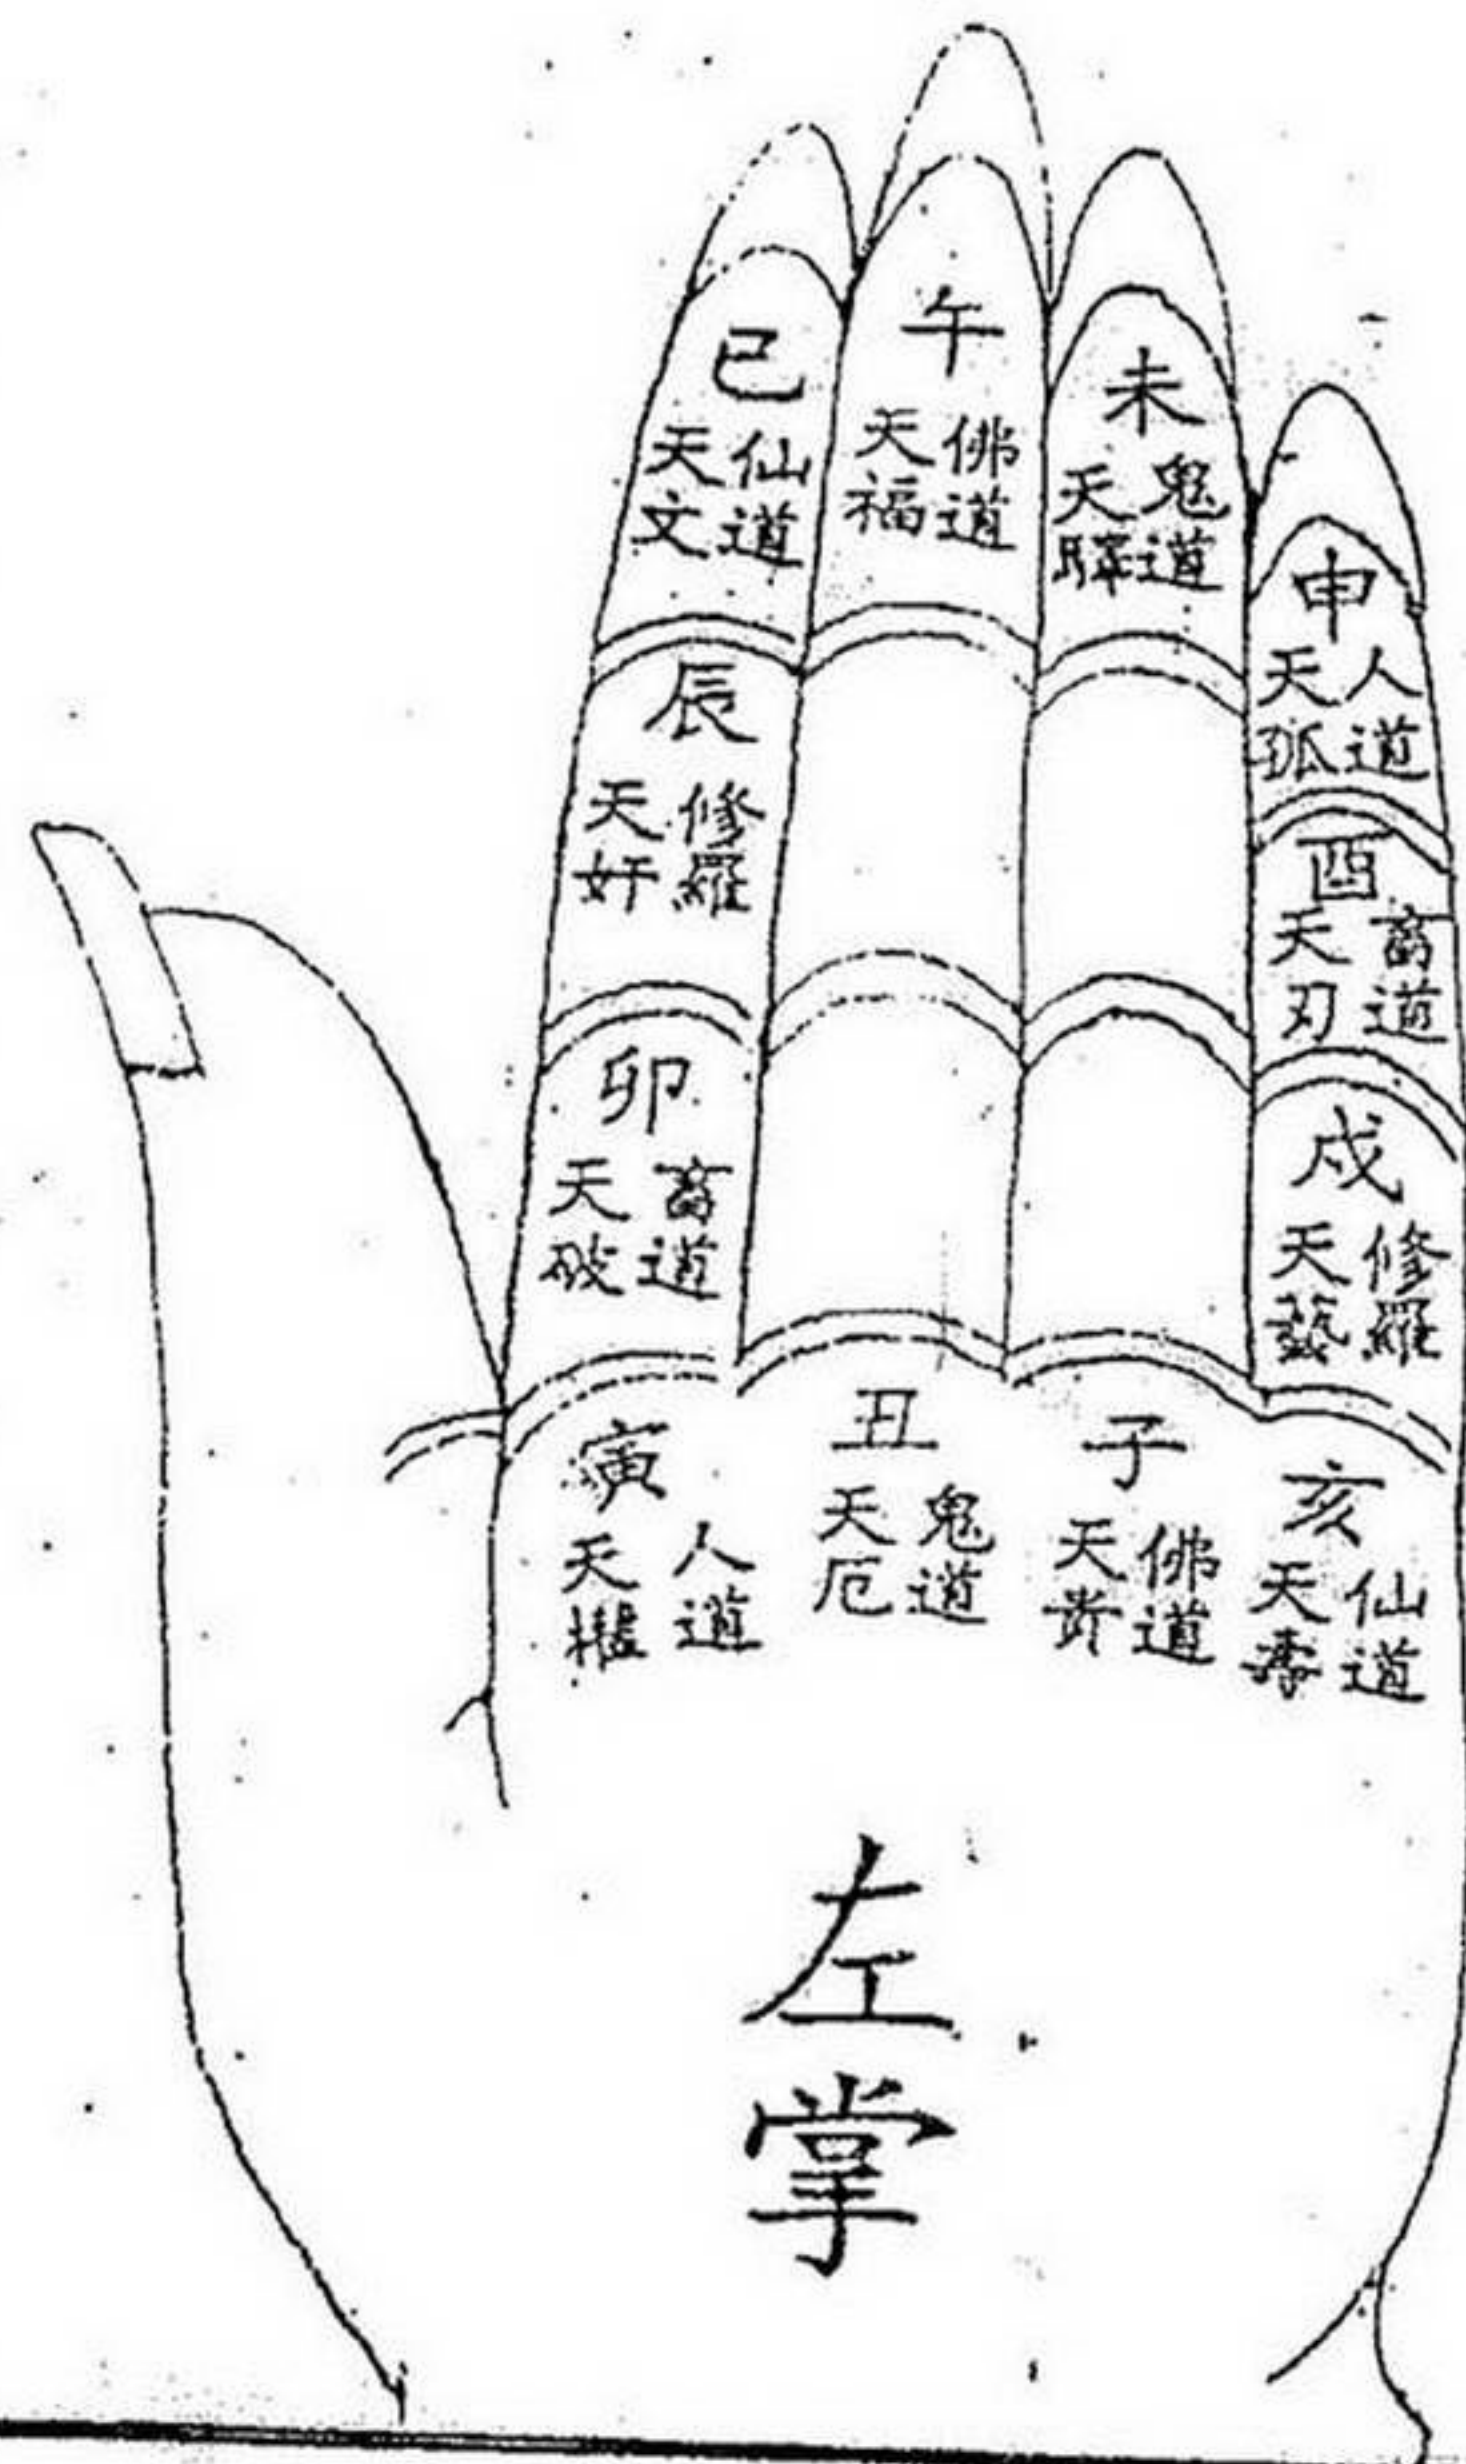 巳
仙道
天文
午
佛道
天福
未
鬼道
天驛
申
人道
天孤
辰
修羅
天奸
酉
畜道
天刃
卯
畜道
天破
戌
修羅
天藝
寅
人道
天權
丑
鬼道
天厄
子
佛道
天贵
亥
仙道
天壽
左掌